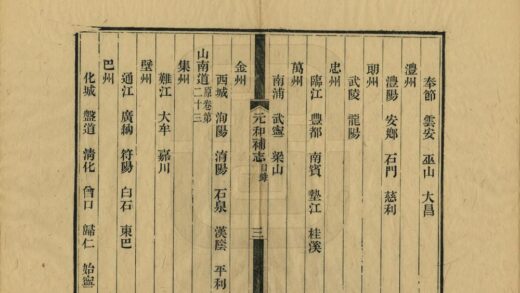 奉節 雲安 巫山 大昌
澧州
澧陽 安鄉 石門 慈利
朗州
武陵 龍陽
忠州
臨江 豐都 南賓 墊江 桂溪
萬州
南浦 武寧 梁山
元和補志 目錄 三
金州
西城 洵陽 淯陽 石泉 漢陰 平利
山南道 原卷第二十三
集州
難江 大牟 嘉川
壁州
通江 廣納 符陽 白石 東巴
巴州
化城 盤道 清化 曾口 歸仁 始寧